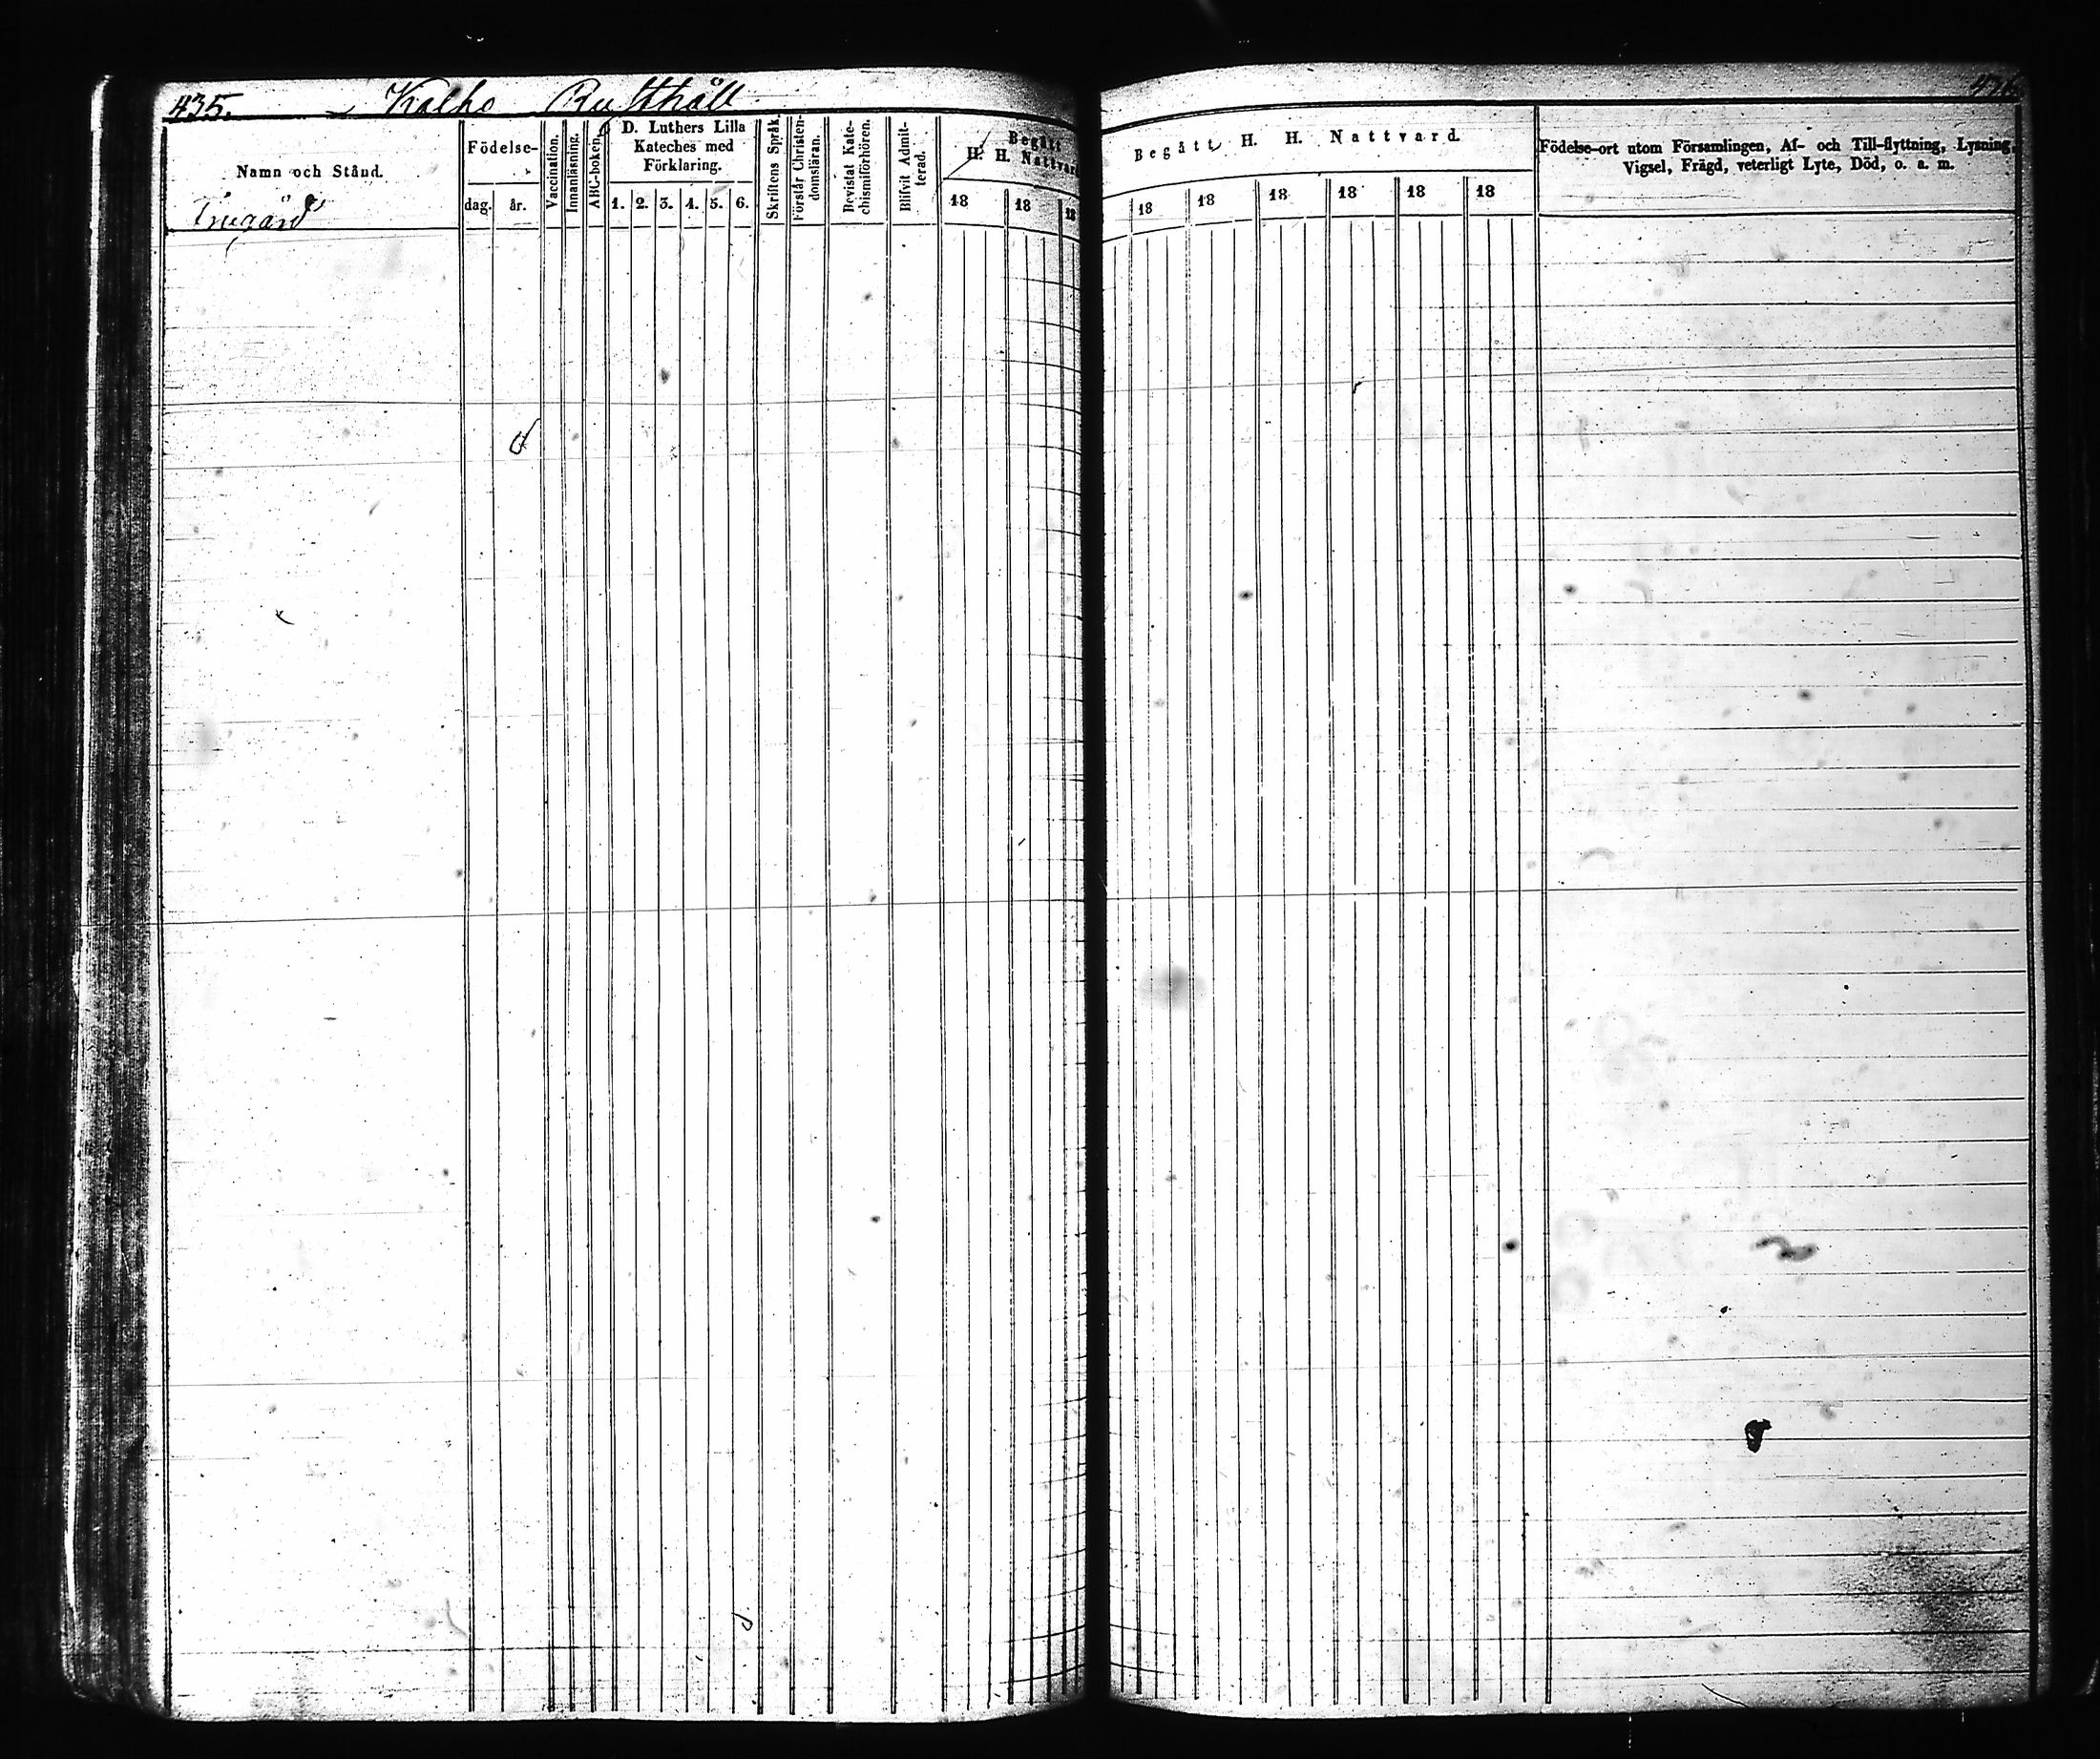 435. Kalho Rusthåll
Namn och Stånd.
Födelse-
dag. år.
Vaccination.
Innanläsning.
ABC-boken.
D. Luthers Lilla
Kateches med
Förklaring.
1. 2. 3. 4. 5. 6.
Skriftens Språk.
Förstår Christen-
domsläran.
Bevistat Kate-
chismiförhören.
Blifvit Admit-
terad.
Begått
H. H. Nattvard
18 18 18
Begått H. H. Nattvard.
18 18 18 18 18 18
Födelse-ort utom Församlingen, Af- och Till-flyttning, Lysning,
Vigsel, Frägd, veterligt Lyte, Död, o. a. m.